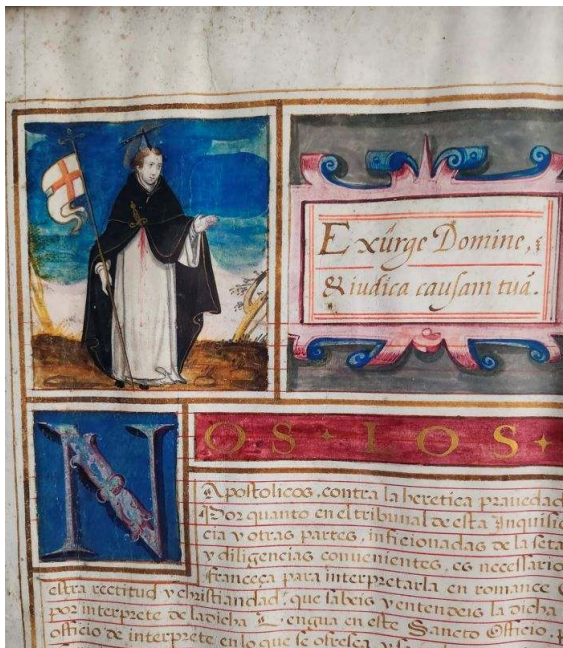 Exurge Domine, &
& iudica causam tuã.
NOS · LOS ·
Apostolicos, contra la heretica prauedad
Por quanto en el tribunal de esta Inquisic
cia y otras partes, inficionadas de la seta
y diligencias conuenientes, es necessario
françeça para interpretarla en romance
estra rectitud y christiandad, que sabeis y entendeis la dicha
por interprete de la dicha Lengua en este Sancto Officio,
officio de interprete en lo que se ofresca